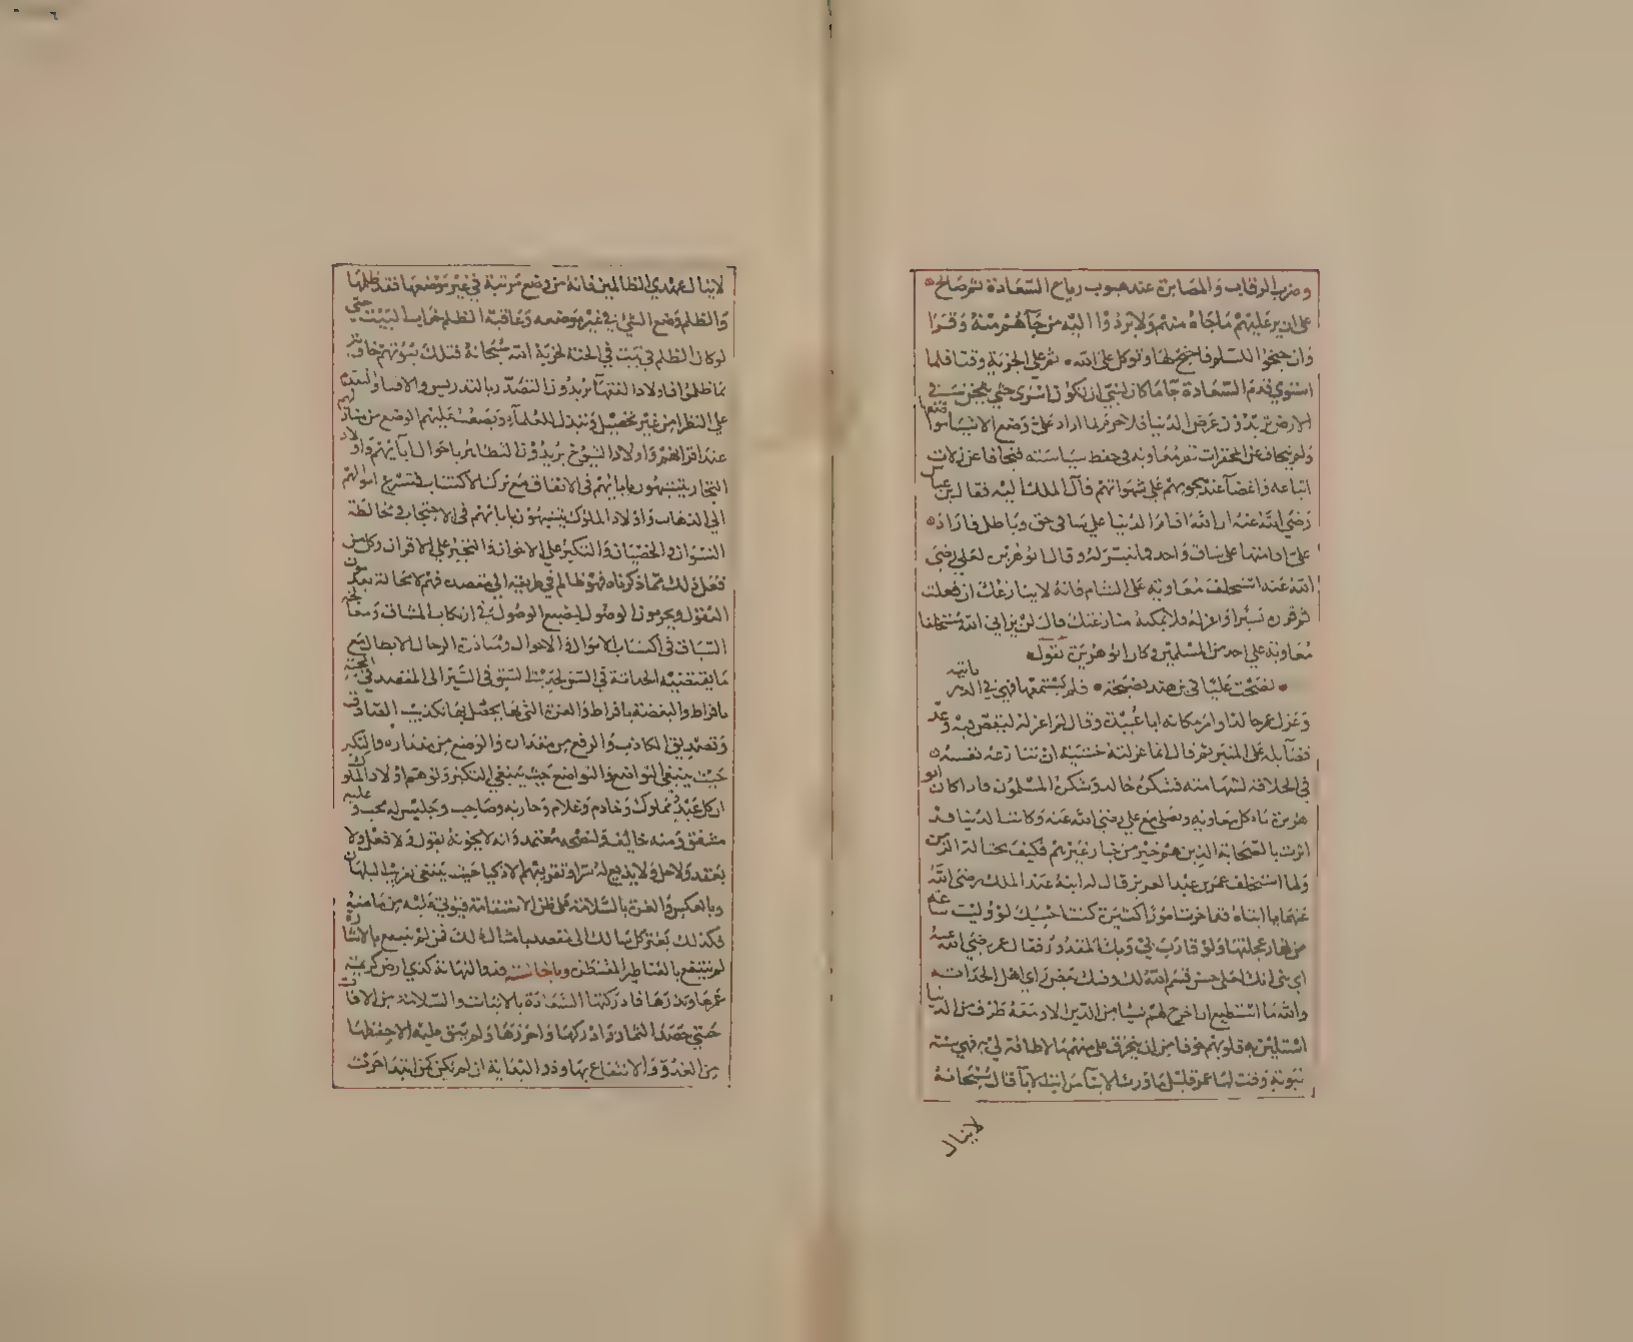 وضرب الرقاب والمصابرة عند هبوب رياح السعادة ثم صالح
على ان يرد عليهم ما جاه منهم ولا يردوا اليه من جآهم منه وقرا
وان جنحوا للسلم فاجنح لها وتوكل على الله ثم على الجزية وقتا فلما
استوي قدم السعادة جا ما كان لنبي ان يكون له اسرى حتى يثخن في
الارض تريدون عرض الدنيا فلا جرم لما اراد على وضع الانبيا
ولم يتجاف عن المحقرات نفر معاوية في حفظ سياسته فتجافا عن زلات
اتباعه واغضا عند تحوبهم على شهواتهم فآل الملك اليه فقال بن عباس
رضي الله عنه اراد الله اقام الدنيا على ساقي حق وباطل فاراد
على اقامتها على ساق واحد فما تيسر له وقال ابو هريرة لعلي رضي
الله عنه استخلف معاوية على الشام فانه لا ينازعك ان فعلت
ثم قرره يسيرا واعزله فلا يمكنه منازعتك قال لن يراني الله مستخلفا
معاوية على احد من المسلمين وكان ابو هريرة يقول
نصحت عليا في بن هند نصيحة فلم يستمعها فهي في الدهر ثانيه
وعزل عمر خالدا وامر مكانه ابا عبيدة وقال لم اعزله لبغض به
على المنبر ثم قال انما عزلته خشية ان تنازعه نفسه
في الخلافة لشهامته فسكن خالد وسكن المسلمون فاذا كان ابو
هريرة ياكل مع معاوية ويصلي مع علي رضي الله عنه وكانت الدنيا قد
اثرت بالصحابة الذين هم خير من غيرهم فكيف بحثالة
ولما استخلف عمر بن عبد العزيز قال له ابنه عبد الملك رضي الله
عنهما يا ابتاه قد اخرت امورا كثيرة كنت احسبك لو وليت ساعة
من نهار عجلتها ولو فارت بي وبك القدور فقال عمر رضي الله عنه
اي بني انك على حسن قسم الله لك وفيك بعض راي اهل الحداثة
والله ما استطيع ان اخرج لهم شيا من الدين الا ومعه طرف من الدنيا
استلين به قلوبهم خوفا من ان ينخرق علي منهم ما لا طاقة لي به فهي سنة
نبوية قال سبحانه
لا ينال
لا ينال عهدي الظالمين فانه من وضع مرتبة في غير موضعها فقد ظلمها
والظلم وضع الشئ في غير موضعه وعاقبة الظلم خراب البيت حتى
لو كان الظلم في بيت في الجنة لخربه الله سبحانه فتلك بيوتهم خاوية
بما ظلموا فاولاد الفقهآ يريدون التصدر بالتدريس والافتا والتقدم
على النظرا من غير تحصيل فتبتذل العلمآء ويصعب عليهم الوضع من منازلهم
عند اقرانهم واولاد الشيوخ يريدون التظاهر باحوال آبآيهم واولاد
التجار يتشبهون بابايهم في الانفاق مع ترك الاكتساب فتسرع اموالهم
الى الذهاب واولاد الملوك يتشبهون بابائهم في الاحتجاب في مخالطة
النسوان والخصيان والتكبر على الاخوان والتجبر على الاقران وكل من
فعل ذلك مما ذكرناه فهو ظالم في طريقه الى مقصده فهم لا محالة
ويحرمون الوصول لتضييع الوصول في ارتكاب المشاق
السباق في اكتساب الاموال والاحوال الرجال الابطال مع
ما يقتضيه الحداثة في السن الى المقصد في المحبة
بافراط والبغضة بافراط والعزة التي يحصل بها تكذيب الصادق
وتصديق الكاذب والرفع من مقداره والوضع من مقداره والتكبر
حيث ينبغي التواضع والتواضع حيث ينبغي التكبر وتوهم اولاد الملوك
ان كل عبد مملوك وخادم وغلام وحاربه وصاحب وجليس له محب وعليه
مشفق ومنه خائف ولنصحه معتمد وانه لا يخونه بقول ولا فعل ولا
بعقد ولا حل ولا يذيع له سرا وتقريبهم لاذكيا حيث ينبغي
وبالعكس والغرة بالسلامة على ظن الاستقامة
فكذلك يعتبر كل سالك الى مقصد بامثال ذلك فمن لم ينتفع بالاشارة
لم ينتفع بالقناطير المقنطرة وبالجملة كذي ارض كريمة
عمرها وبذرها فادركتها السعادة بالانبات والسلامة من الافات
حتى حصد الثمار وادركها واحرزها ولم يبق عليه الا حفظها
من العدو والانتفاع بها وذو البداية ان لم يكن كمن ابتدا حرث